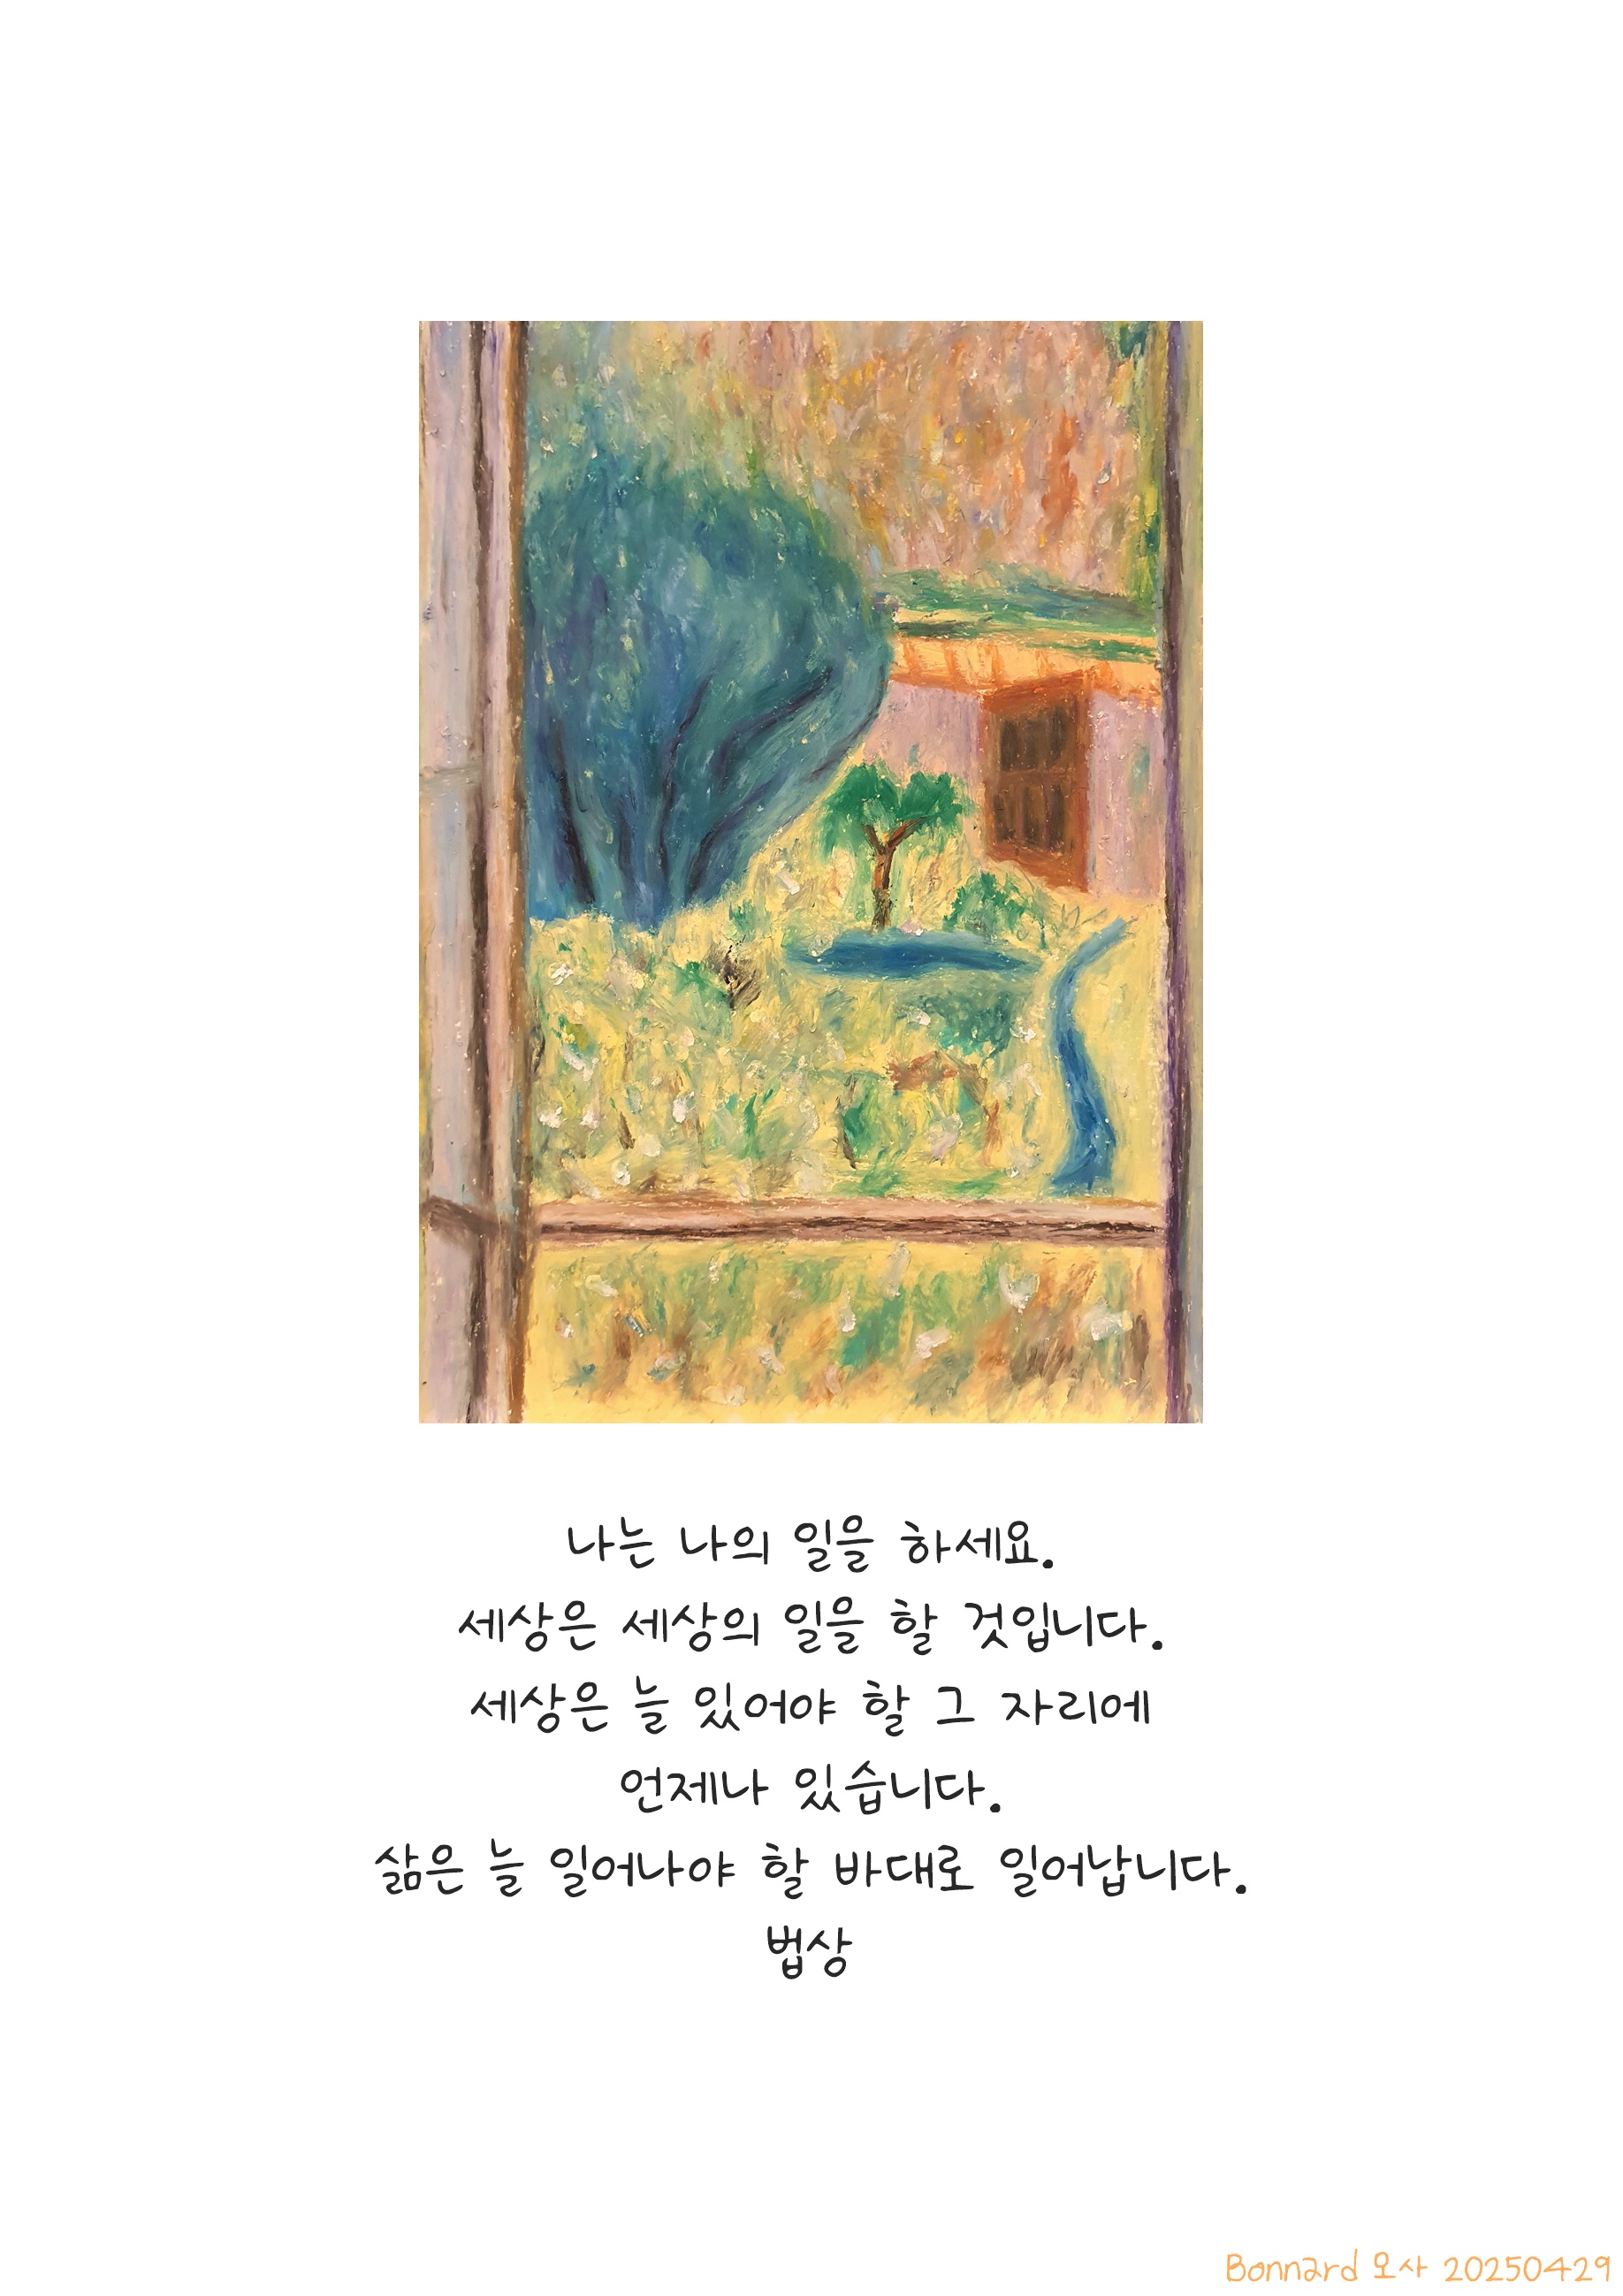 나는 나의 일을 하세요.
세상은 세상의 일을 할 것입니다.
세상은 늘 있어야 할 그 자리에
언제나 있습니다.
삶은 늘 일어나야 할 바대로 일어납니다.
법상
Bonnard 모사 20250429